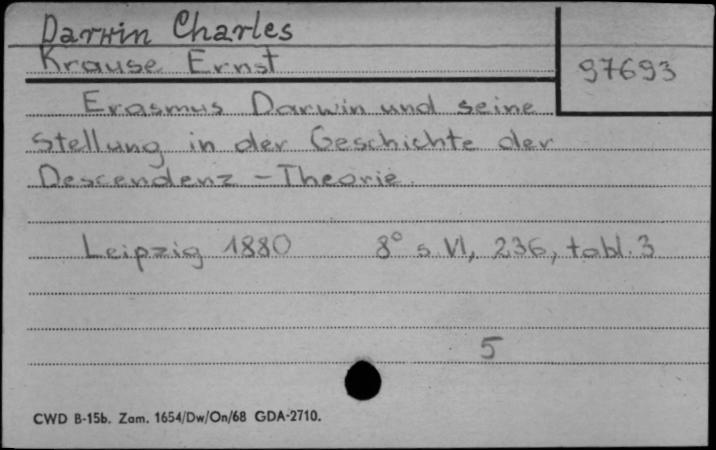 Darwin Charles
Krause Ernst
97693
Erasmus Darwin und seine
Stellung in der Geschichte der
Descendenz - Theorie.
Leipzig 1880 8° s. VI, 236, tabl. 3
5
CWD B-15b. Zam. 1654/Dw/On/68 GDA-2710.